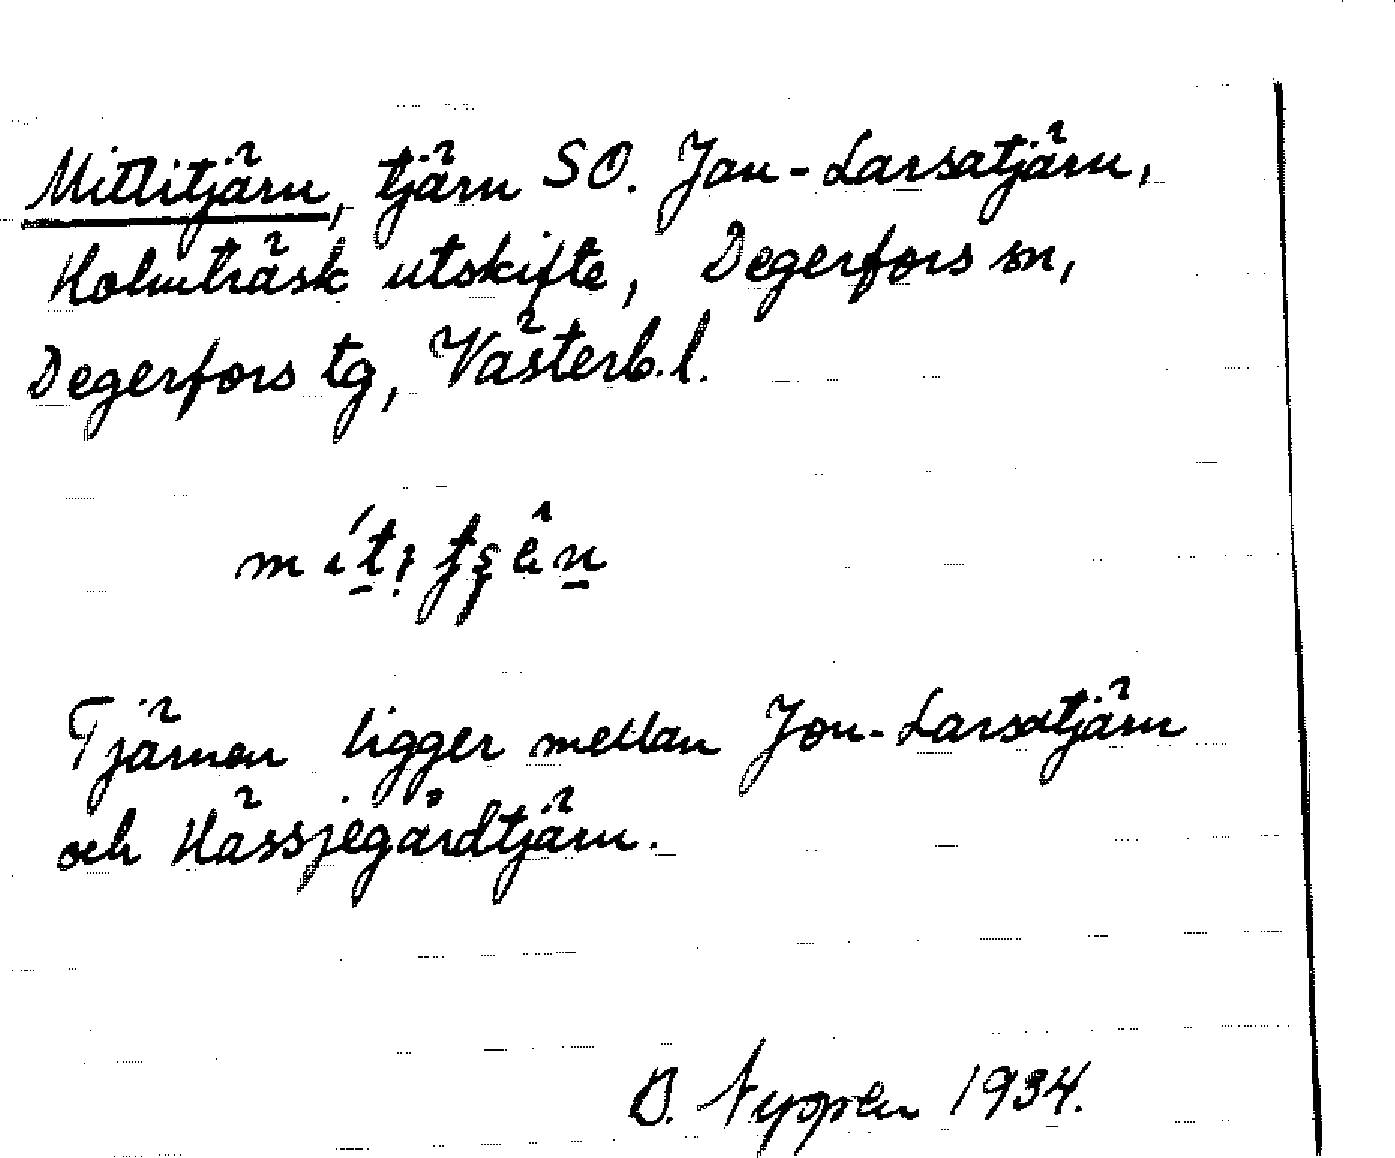 Mittitjärn, tjärn SO. Jon-Larsatjärn,
Holmträsk utskifte, Degerfors sn,
Degerfors tg, Västerb. l.
Tjärnen ligger mellan Jon-Larsatjärn
och Hässjegårdtjärn.
1934.